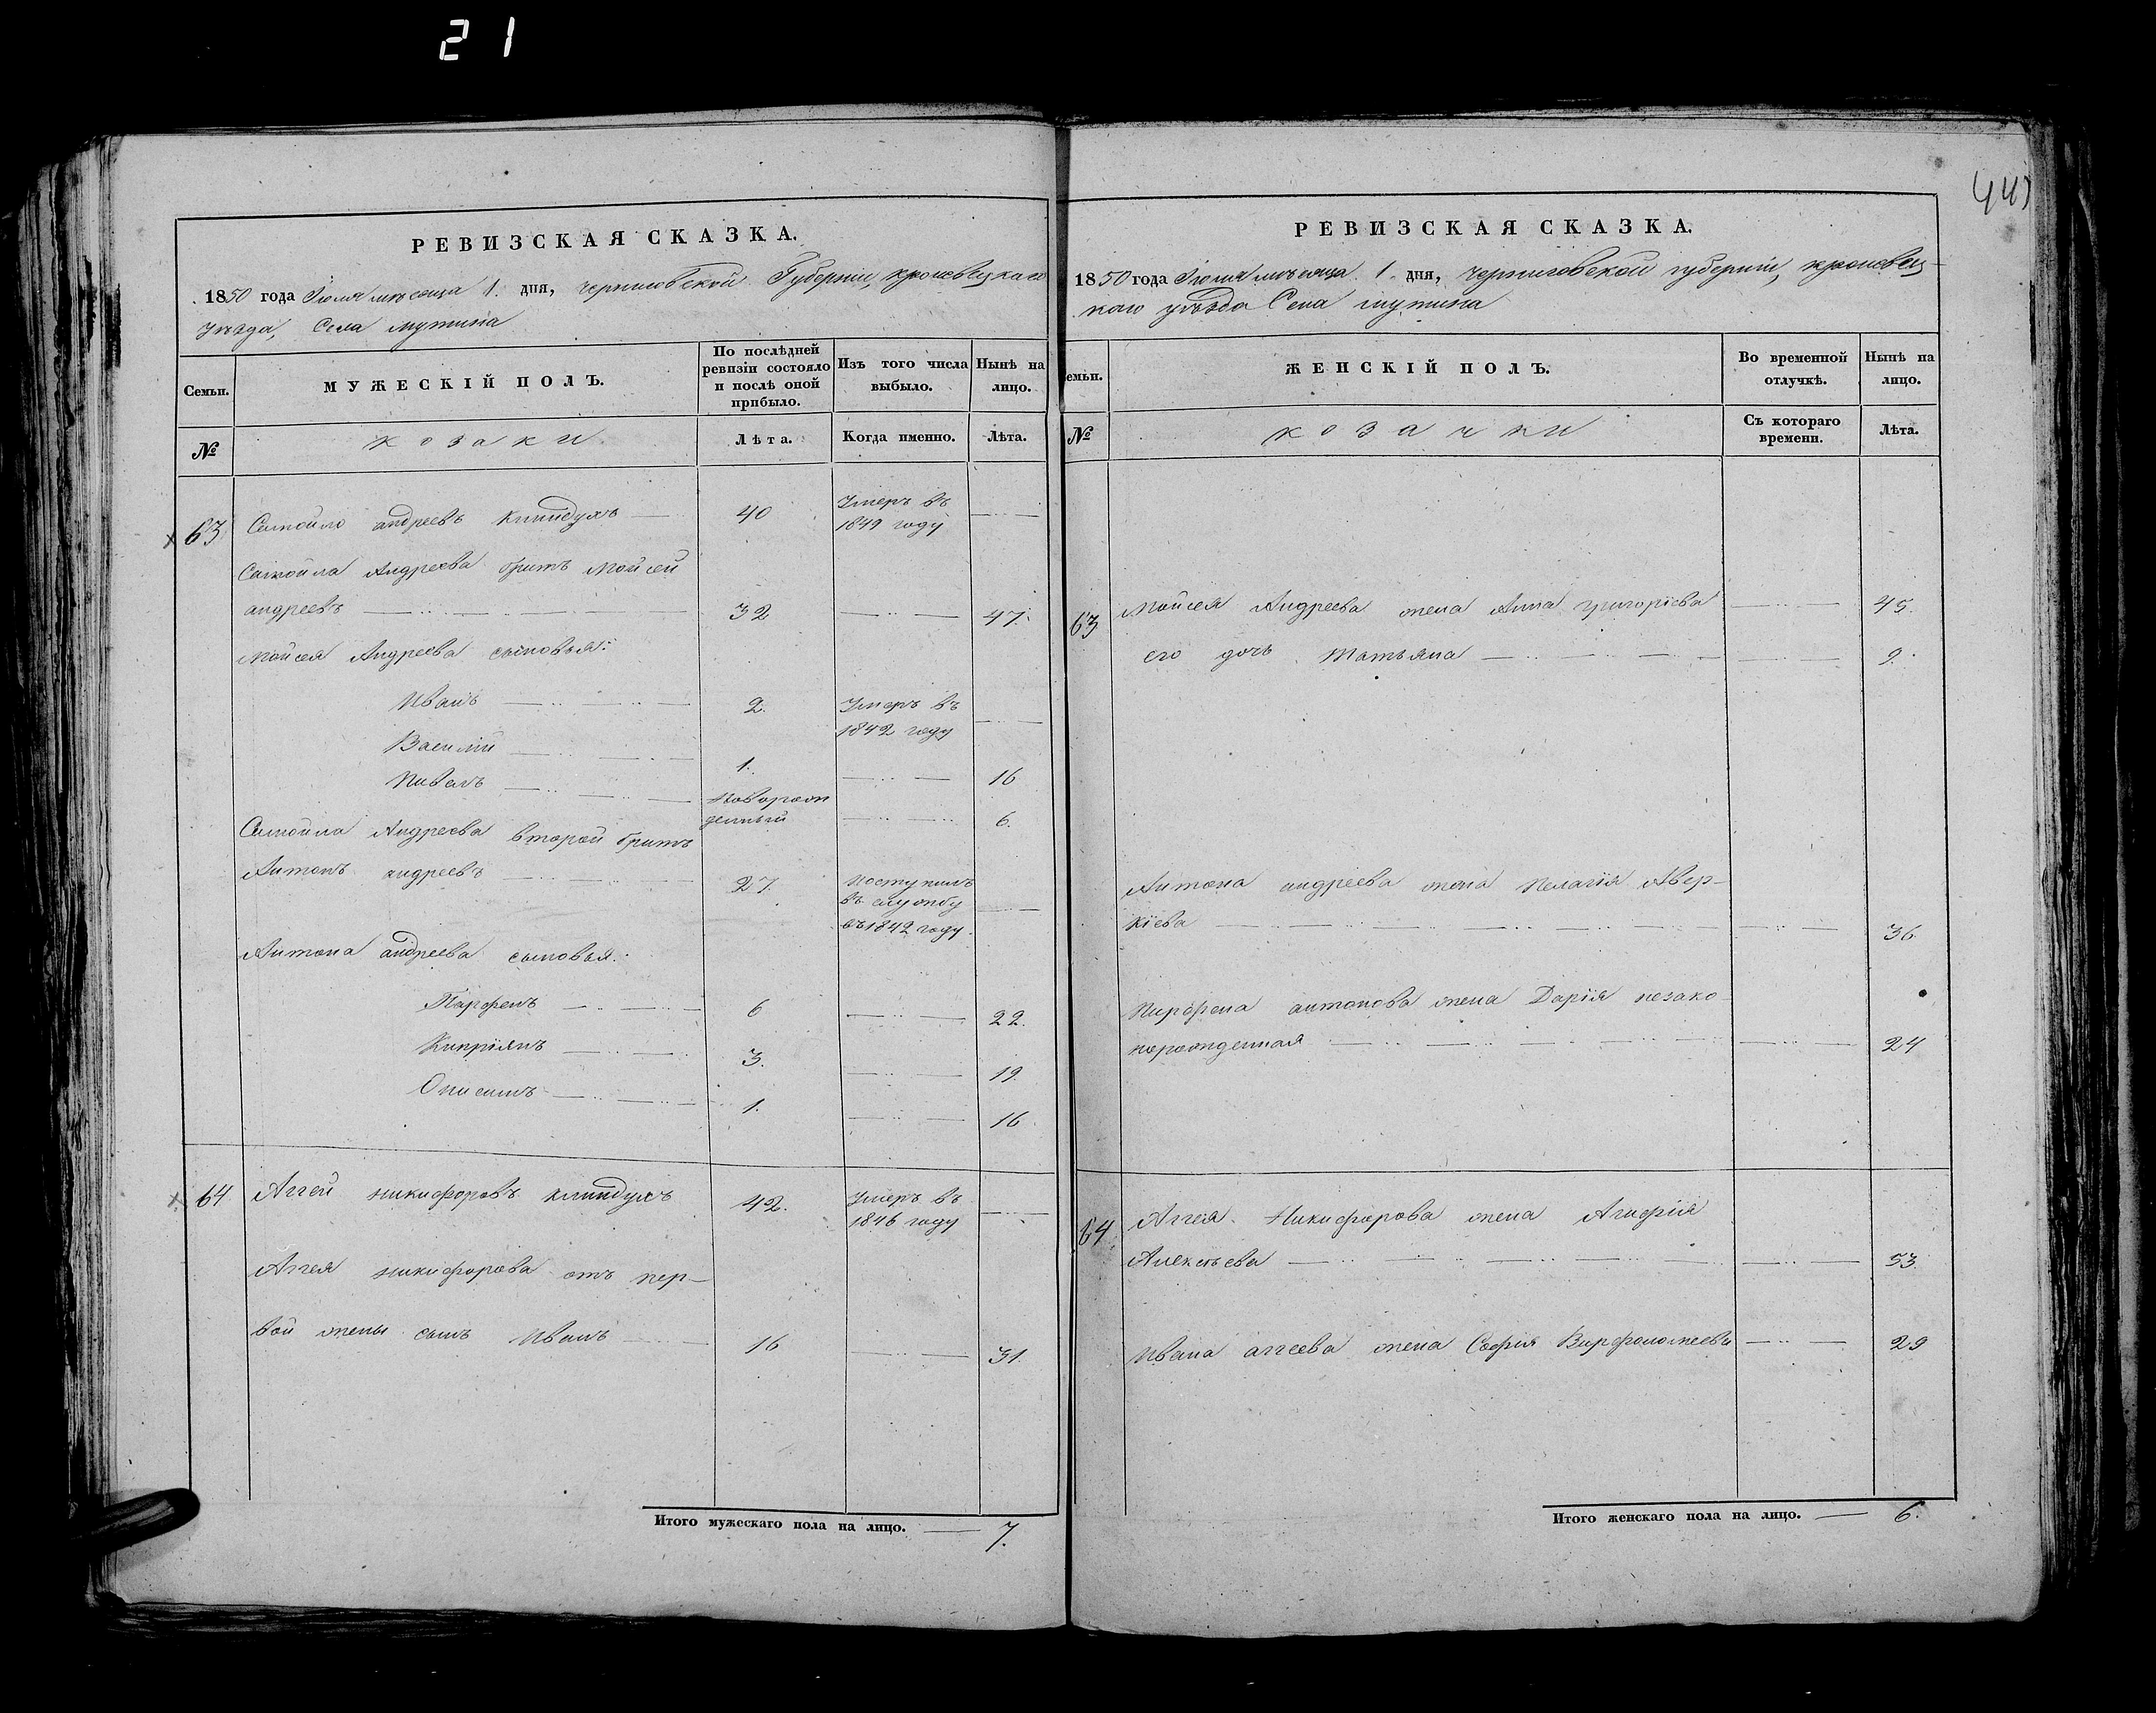 21
РЕВИЗСКАЯ СКАЗКА.
1850 года Іюля мѣсяца 1. дня, черниговской Губерніи, кролевецкаго
уѣзда, Села мутина
Семьи.
МУЖЕСКІЙ ПОЛЪ.
По послѣдней ревизіи состояло и послѣ оной прибыло.
Изъ того числа выбыло.
Нынѣ на лицо.
№
козаки
Лѣта.
Когда именно.
Лѣта.
63 Самойло андреевъ Клиндухъ — 40 Умеръ въ
1849 году
Самойла Андреева братъ Мойсей
андреевъ 32 47.
Мойсея Андреева сыновья:
Иванъ 2. Умеръ въ
1842 году
Василій 1. 16
Павелъ новорож
денный 6.
Самойла Андреева второй братъ
Антонъ андреевъ 27. поступилъ
въ службу
въ 1842 году.
Антона андреева сыновья:
Парфенъ 6 22.
Кипріянъ 3. 19.
Онисимъ 1. 16
64 Аггей никифоровъ клиндухъ 42. Умеръ въ
1846 году
Аггея никифорова отъ пер-
вой жены сынъ Иванъ 16 31.
Итого мужескаго пола на лицо. — 7.
РЕВИЗСКАЯ СКАЗКА.
1850 года Іюля мѣсяца 1. дня, черниговской губерніи, кролевец-
каго уѣзда Села мутина
емьи.
ЖЕНСКІЙ ПОЛЪ.
Во временной отлучкѣ.
Нынѣ на лицо.
№
козачки
Съ котораго времени.
Лѣта.
63 Мойсея Андреева жена Анна григоріева 45.
его дочь Татьяна 9.
Антона андреева жена Пелагія Авер-
кіева 36.
Парфена антонова жена Дарія незако
норожденная 24
64 Аггея Никифорова жена Агафія
Алексѣева 53.
Ивана аггеева жена Софія Варфоломеева 29
Итого женскаго пола на лицо. — 6.